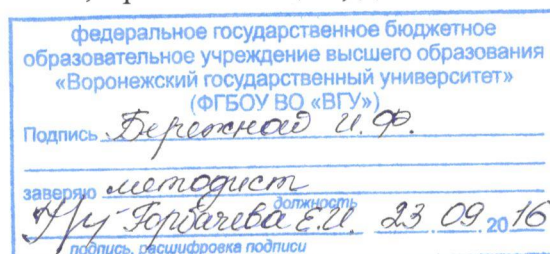 федеральное государственное бюджетное
образовательное учреждение высшего образования
«Воронежский государственный университет»
(ФГБОУ ВО «ВГУ»)
Подпись Бережной И.Ф.
заверяю методист
должность
Горбачева Е.И. 23 09. 20 16
подпись, расшифровка подписи